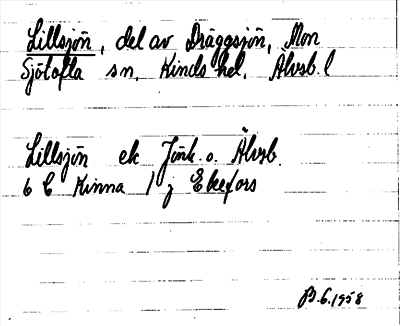 Lillsjön, del av Dräggsjön, Mon
Sjötofta sn, Kinds hd, Älvsb. l
Lillsjön ek Jönk. o. Älvsb.
6 C Kinna 1 j Ekefors
B. 6. 1958